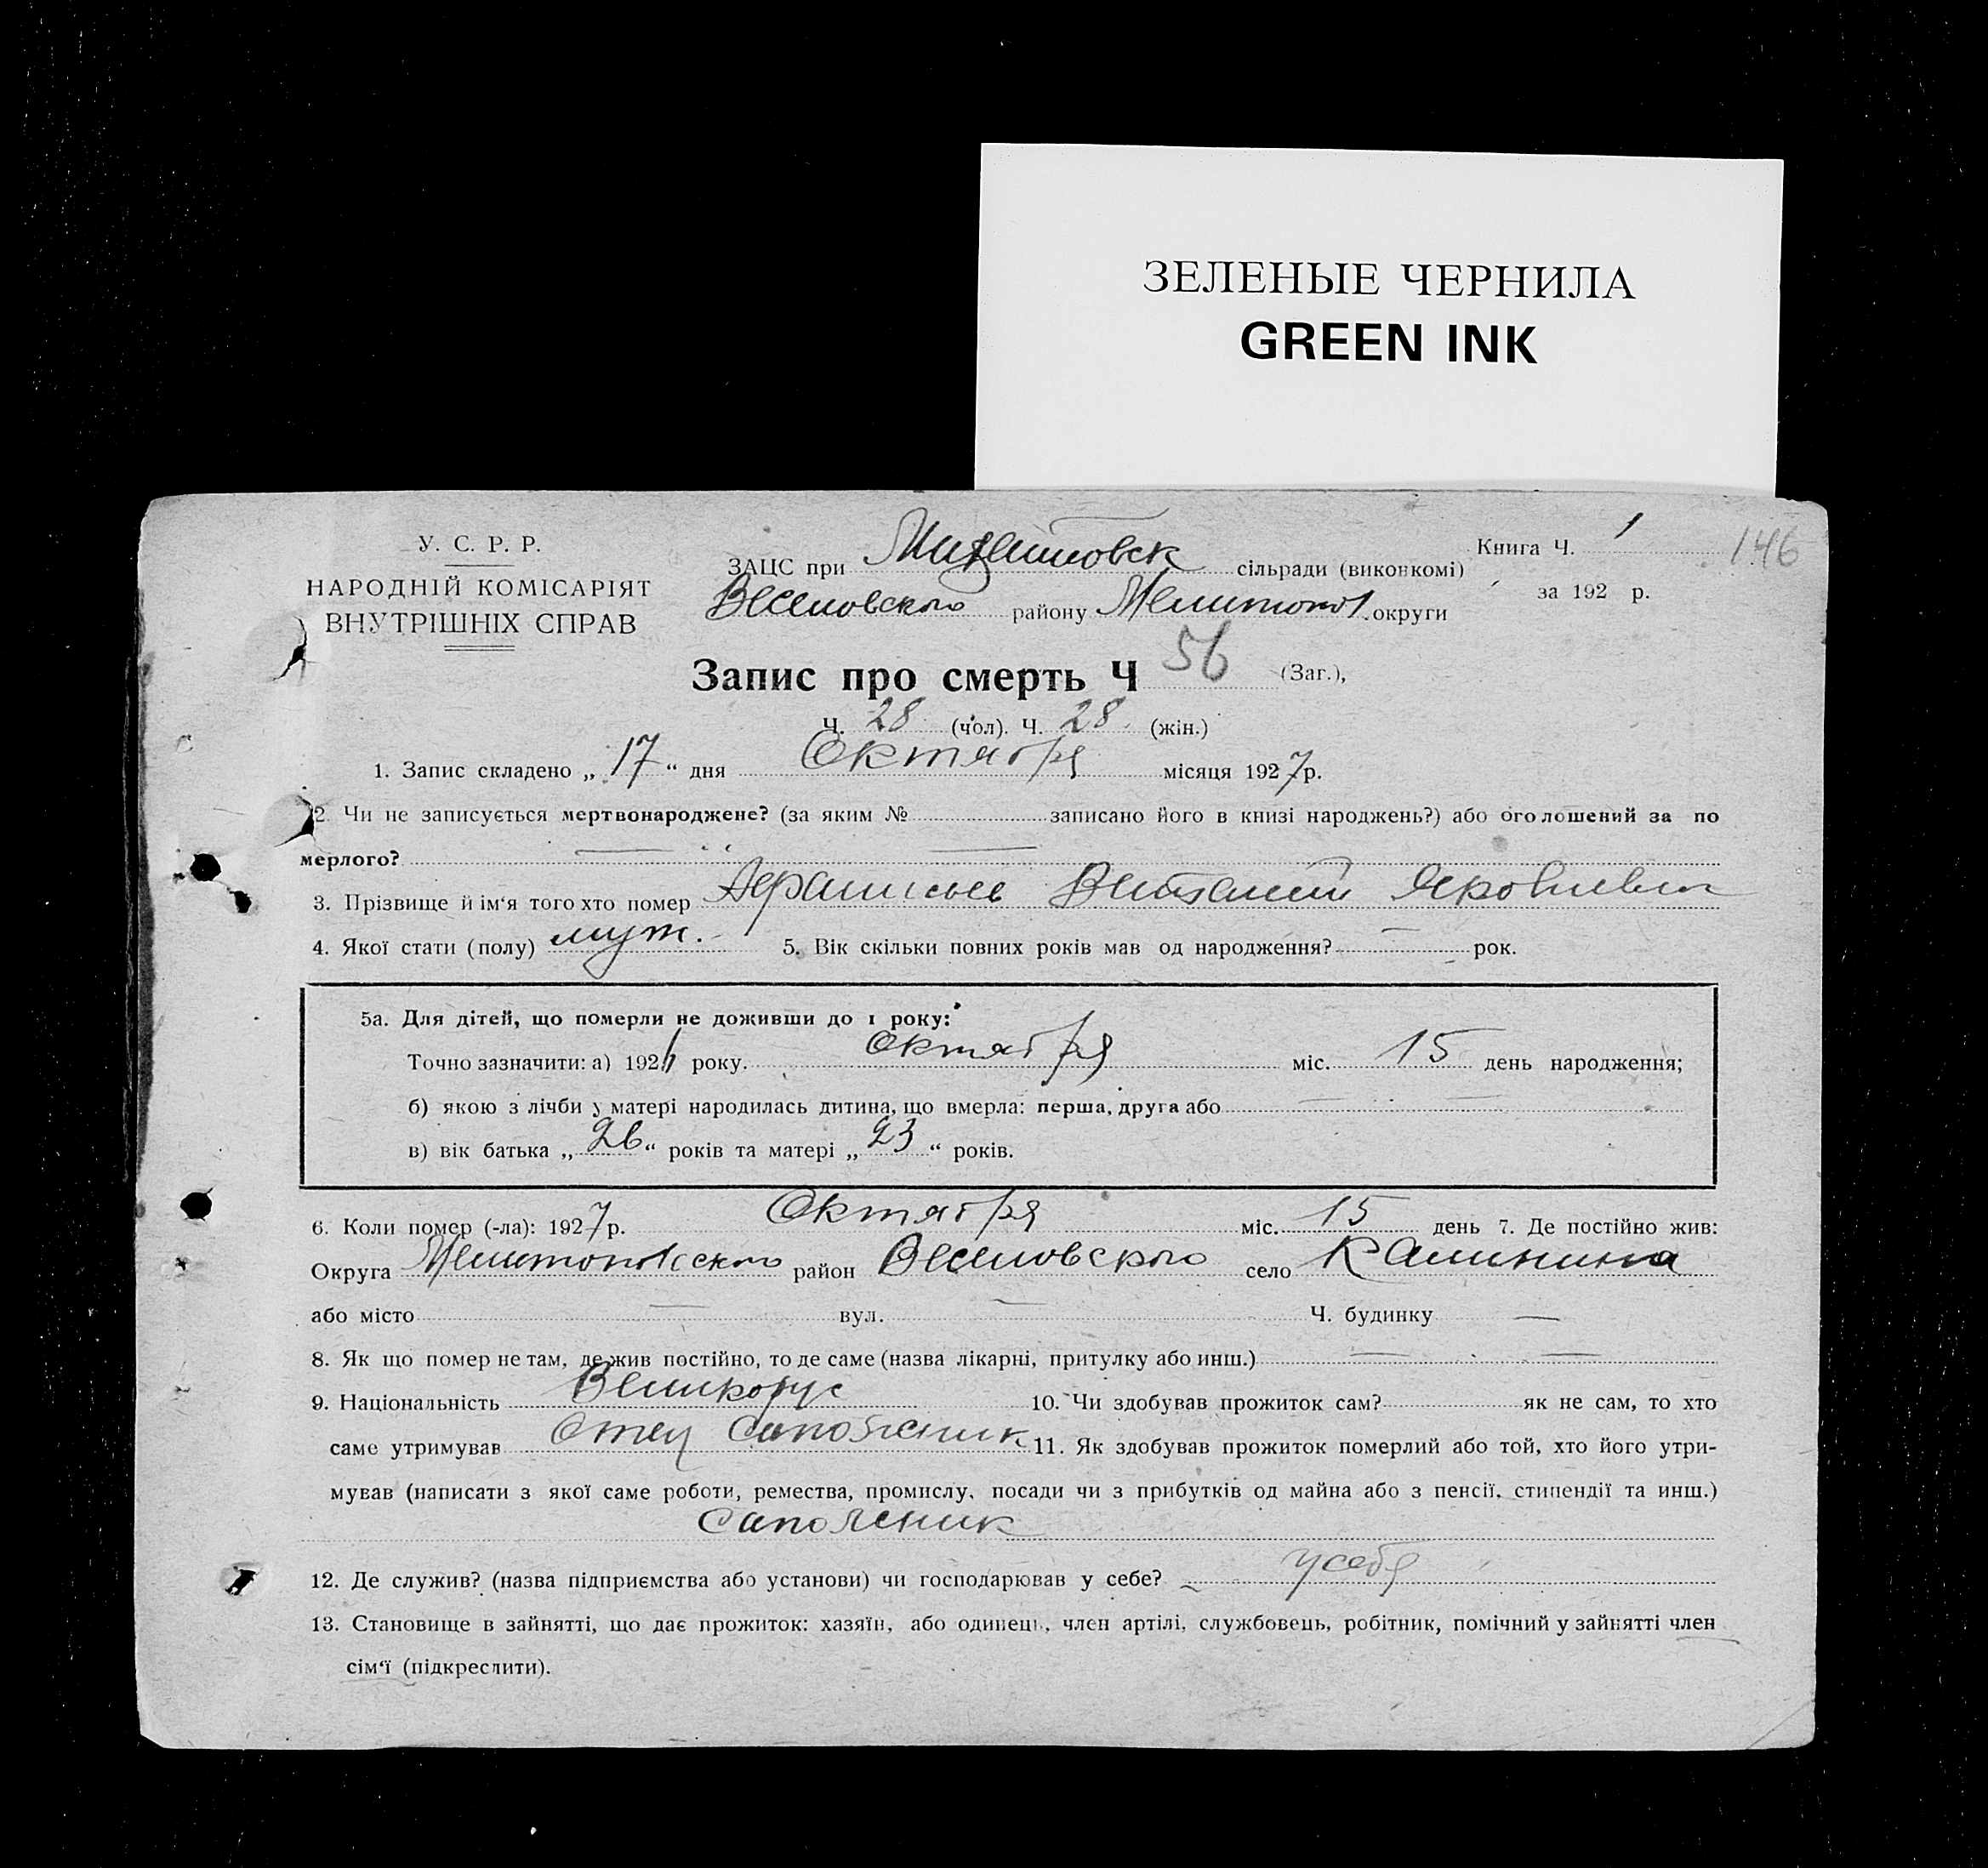 ЗЕЛЕНЫЕ ЧЕРНИЛА
GREEN INK
У. С. Р. Р.
НАРОДНІЙ КОМІСАРІЯТ
ВНУТРІШНІХ СПРАВ
ЗАЦС при Михайловск сільради (виконкомі)
Веселовского району Мелитопол. округи
Книга Ч. 1
146
за 192 р.
Запис про смерть Ч 56 (Заг.),
Ч. 28 (чол). Ч. 28 (жін.)
1. Запис складено „ 17 “ дня Октября місяця 1927 р.
2. Чи не записується мертвонароджене? (за яким № записано його в книзі народжень?) або оголошений за по
мерлого?
3. Прізвище й ім‘я того хто помер Виталий
4. Якої стати (полу) муж. 5. Вік скільки повних років мав од народження? — рок.
5а. Для дітей, що померли не доживши до 1 року:
Точно зазначити: а) 192 року. Октября міс. 15 день народження;
б) якою з лічби у матері народилась дитина, що вмерла: перша, друга або — —
в) вік батька „ 26 “ років та матері „ 23 “ років.
6. Коли помер (-ла): 1927 р. Октября міс. 15 день 7. Де постійно жив:
Округа Мелитопольского район Веселовского село Калинина
або місто — вул. — Ч. будинку —
8. Як що помер не там, де жив постійно, то де саме (назва лікарні, притулку або инш.) — —
9. Національність Великорус 10. Чи здобував прожиток сам? як не сам, то хто
саме утримував Отец Сапожник 11. Як здобував прожиток померлий або той, хто його утри-
мував (написати з якої саме роботи, ремества, промислу, посади чи з прибутків од майна або з пенсії, стипендії та инш.)
Сапожник
12. Де служив? (назва підприємства або установи) чи господарював у себе? у себя
13. Становище в зайнятті, що дає прожиток: хазяїн, або одинець, член артілі, службовець, робітник, помічний у зайнятті член
сім‘ї (підкреслити).